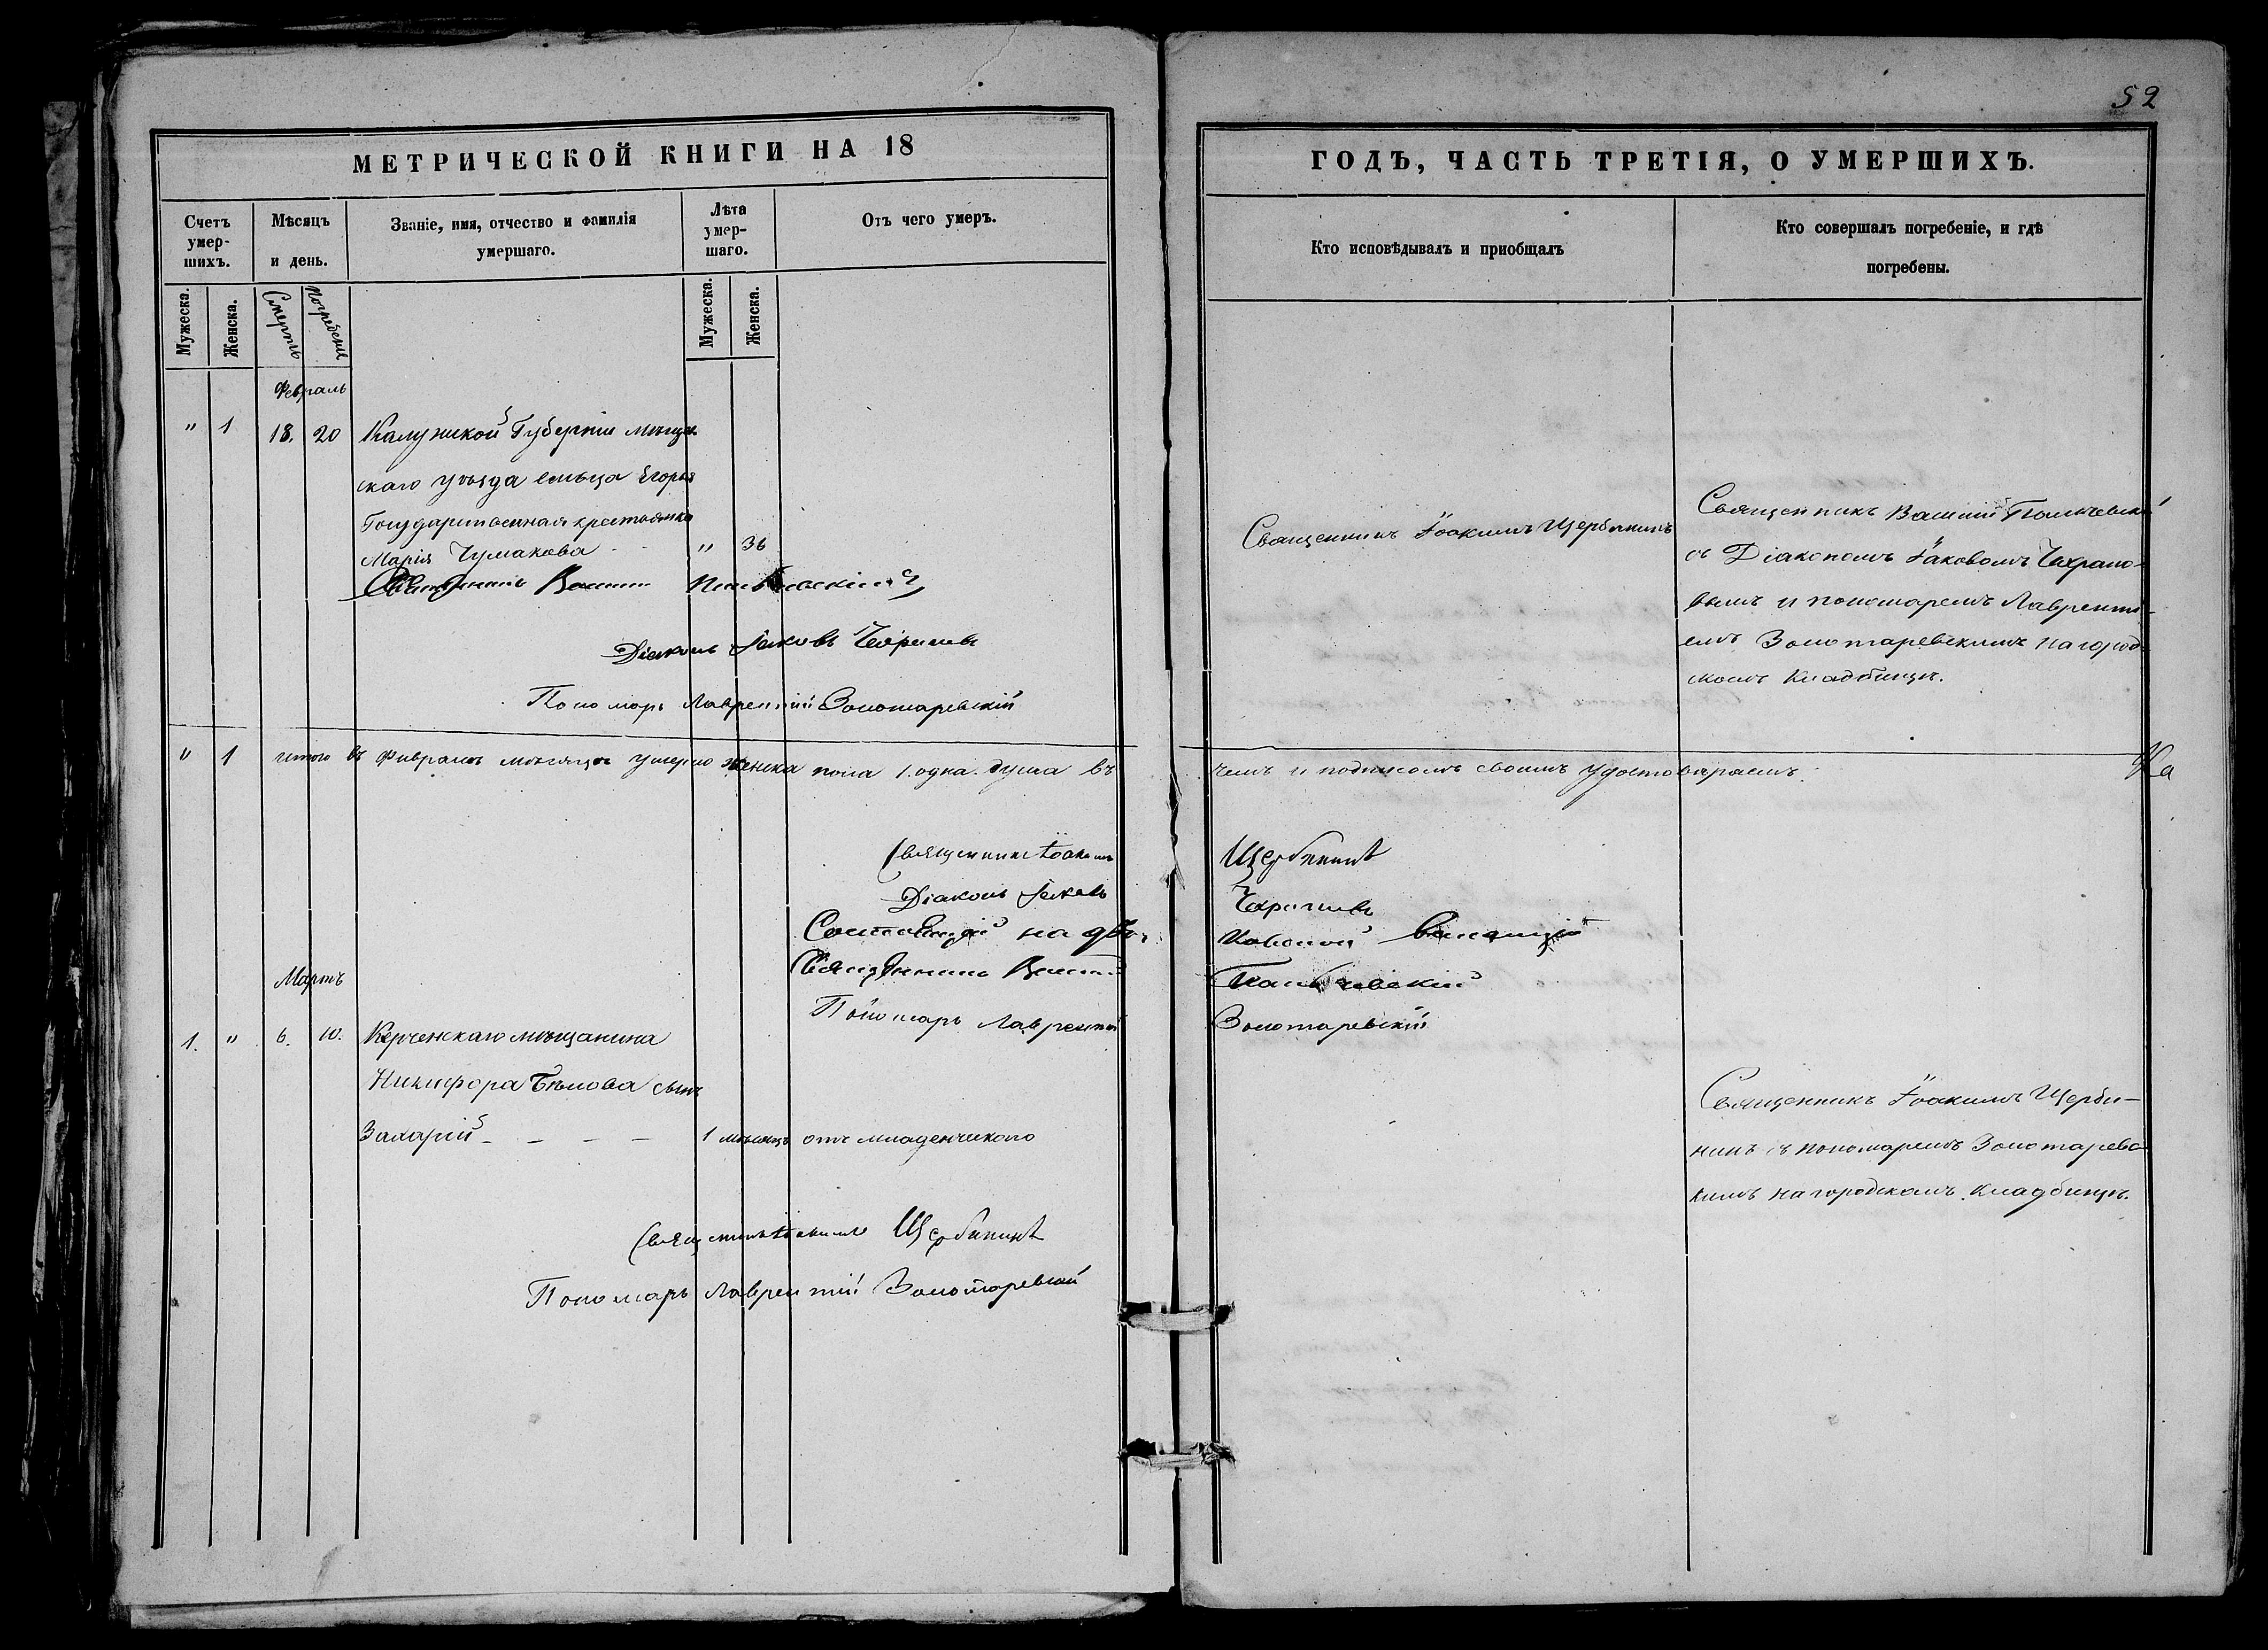 52
МЕТРИЧЕСКОЙ КНИГИ НА 18
ГОДЪ, ЧАСТЬ ТРЕТІЯ, О УМЕРШИХЪ.
Счетъ умер-шихъ.
Мѣсяцъ и день.
Званіе, имя, отчество и фамилія умершаго.
Лѣта умер-шаго.
Отъ чего умеръ.
Кто исповѣдывалъ и приобщалъ
Кто совершалъ погребеніе, и гдѣ погребены.
Мужеска.
Женска.
Смерти
Погребенія
Мужеска.
Женска.
Февраль
" 1 18. 20 Калужской Губерніи
скаго уѣзда сельца
Государственная крестьянка
Марія Чумакова " 36
Священникъ
Діаконъ Іаковъ
Пономарь Лаврентій Золотаревскій
Священникъ Іоакимъ Щербининъ
Священникъ Василій
съ Діакономъ Іаковомъ
вымъ и пономаремъ Лавренті-
емъ Золотаревскимъ на город-
скомъ кладбищѣ.
" 1 итого въ Февралѣ мѣсяцѣ умерло женска пола 1. одна. душа въ
чемъ и подписомъ своимъ удостовѣряемъ.
Священникъ Іоакимъ Щербининъ
Діаконъ Іаковъ
Состоящій на
Священникъ
Пономарь Лаврентій Золотаревскій
Мартъ
1. " 6. 10. Керченскаго мѣщанина
Никифора Бѣлова сынъ
Захарій - - - - 1 мѣсяцъ отъ младенческаго
Священникъ Іоакимъ Щербининъ
Пономарь Лаврентій Золотаревскій
Священникъ Іоакимъ Щерби-
нинъ съ пономаремъ Золотаревс
кимъ на городскомъ кладбищѣ.